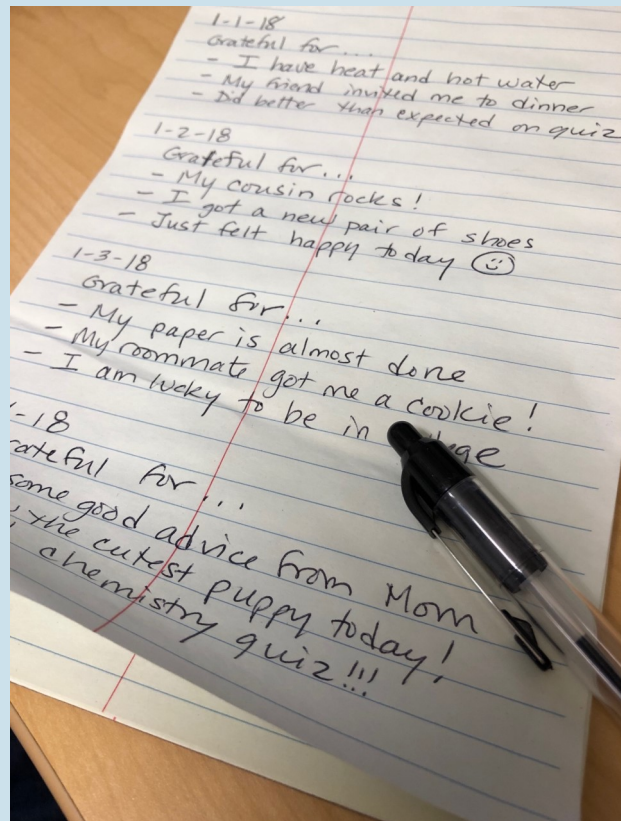 1-1-18
Grateful for...
- I have heat and hot water
- My friend invited me to dinner
- Did better than expected on quiz
1-2-18
Grateful for...
- My cousin rocks!
- I got a new pair of shoes
- Just felt happy today
1-3-18
Grateful for...
- My paper is almost done
- My roommate got me a cookie!
- I am lucky to be in
-18
for...
some good advice from Mom
the cutest puppy today!
chemistry quiz!!!